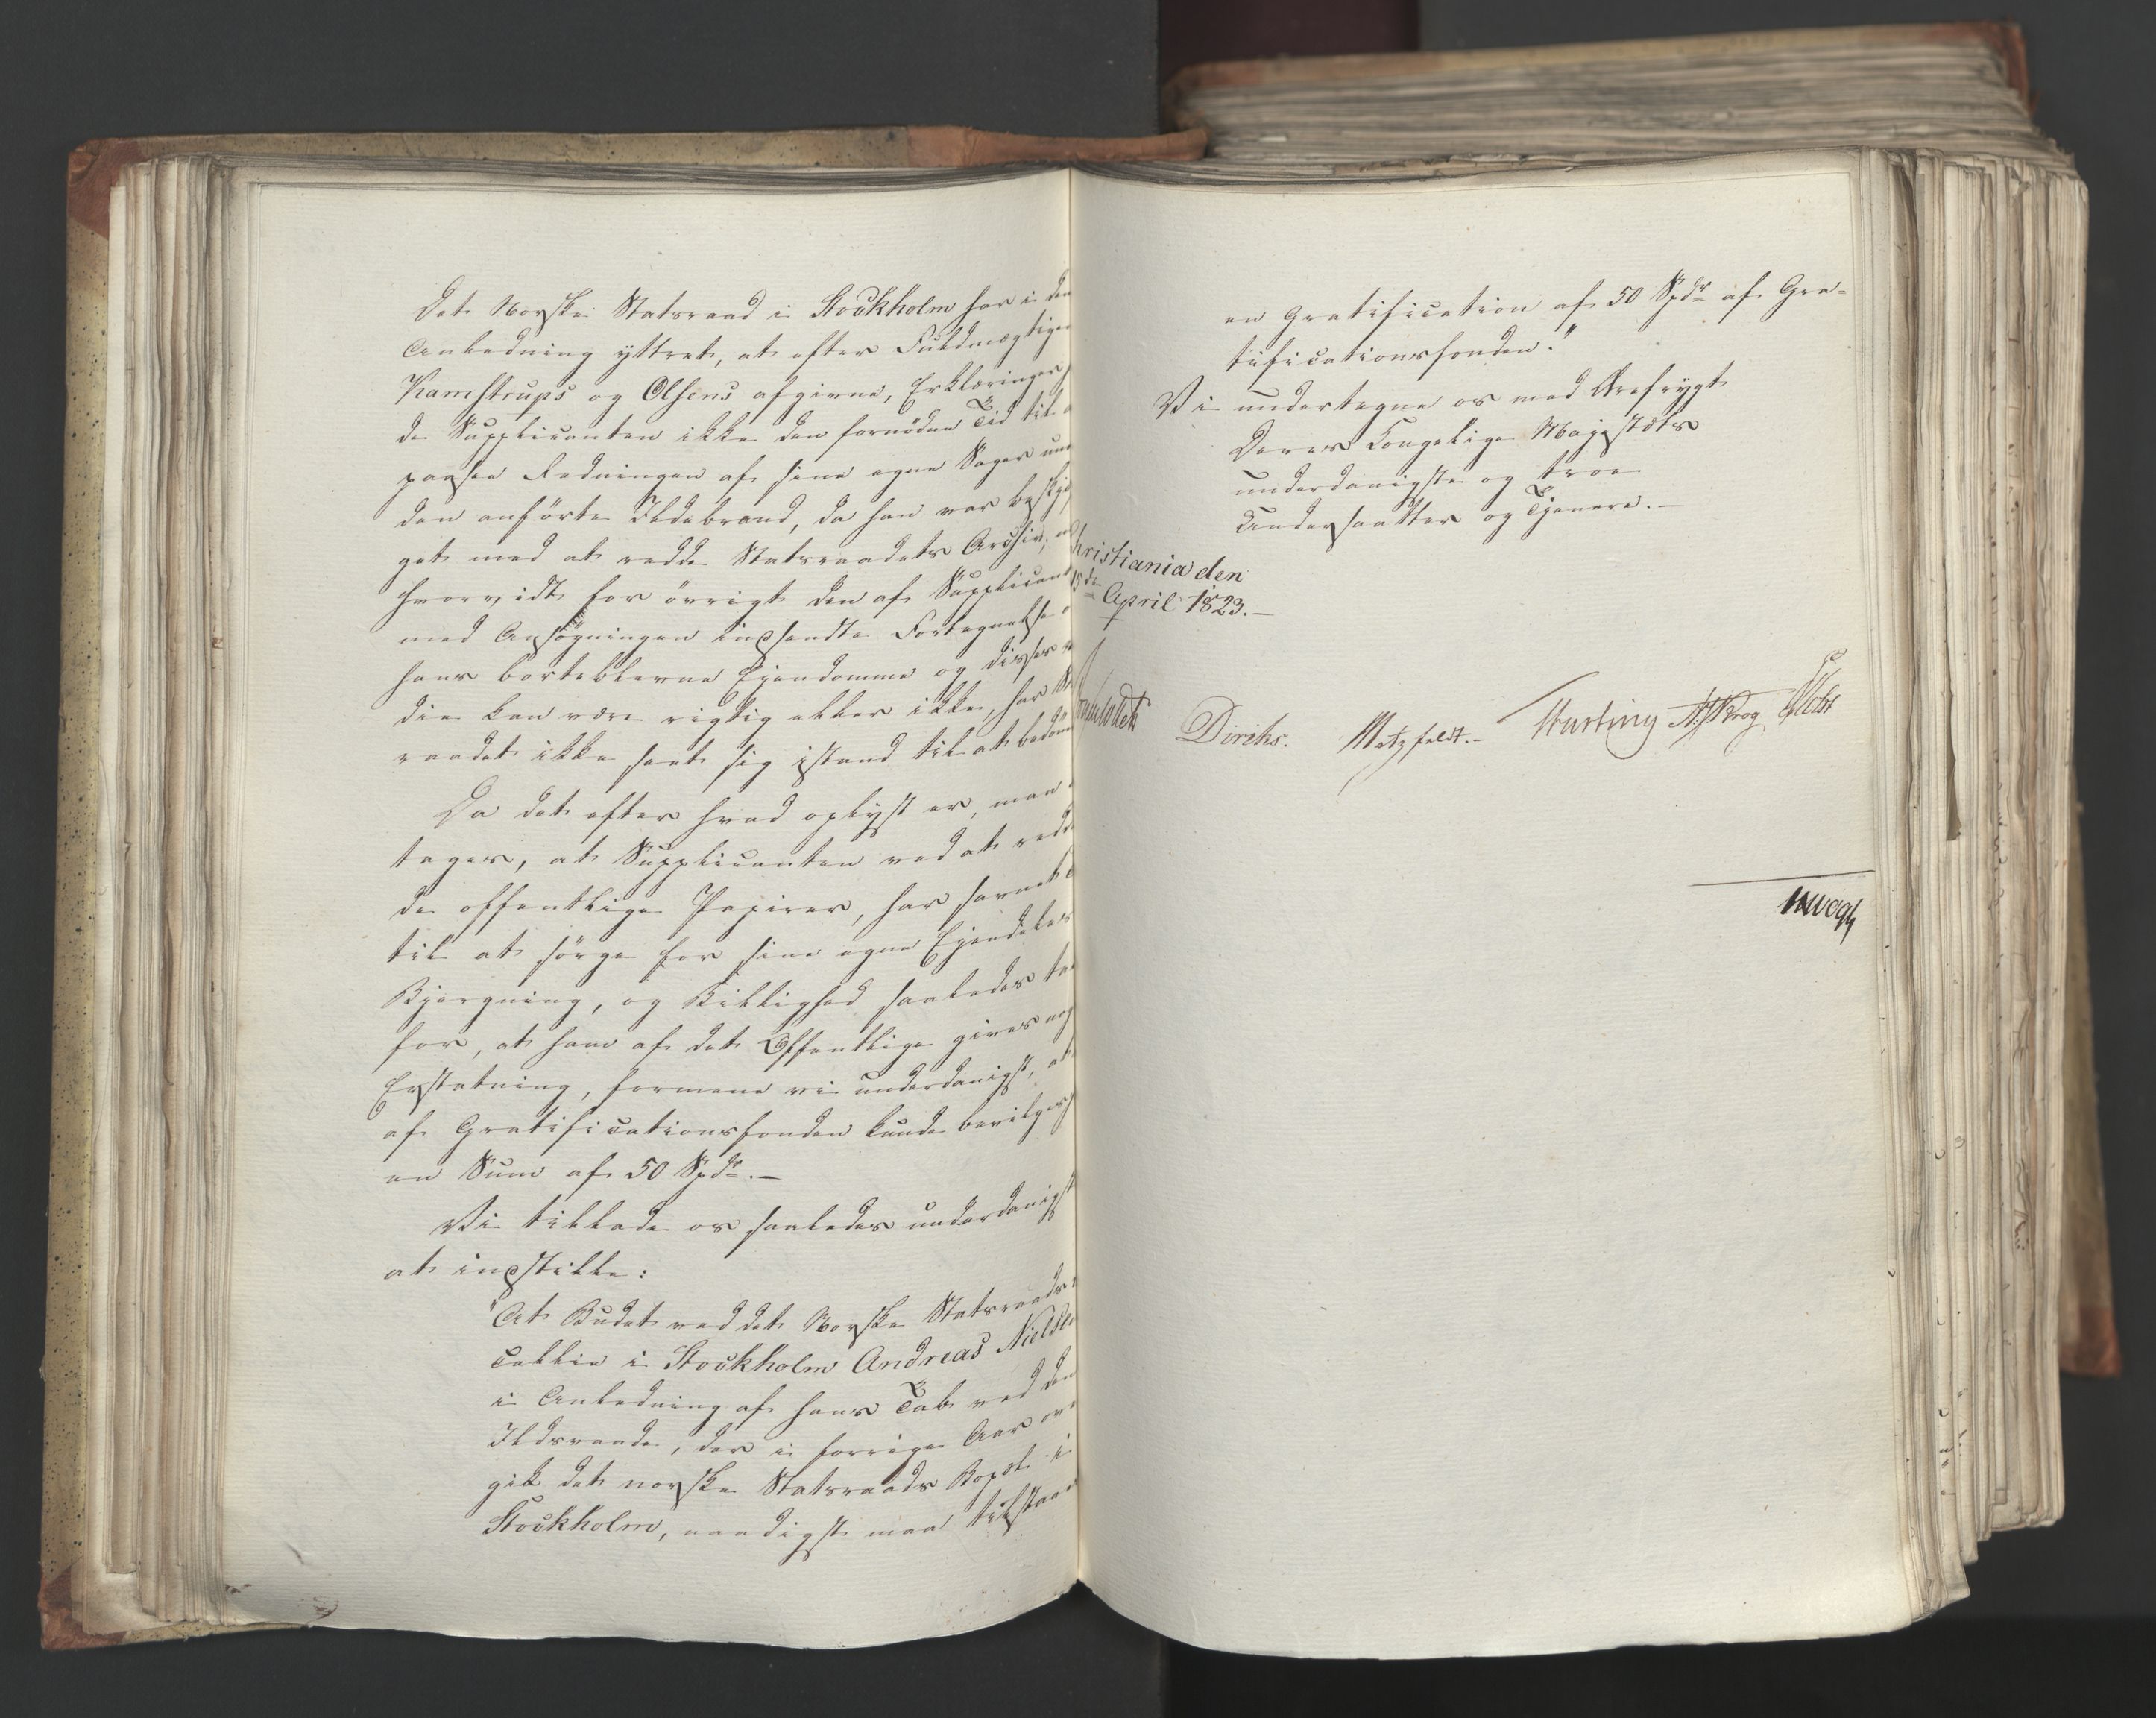 Det Norske Statsraad i Stockholm har i den
Anledning yttret, at efter Fuldmægtigen
Kamstrups og Olsens afgivne Erklæringer
de Supplicanten ikke den fornødne Tid til
passe Redningen af sine egne Sager un
den anførte Ildebrand, da han var beskjæ
get med at redde Statsraadets Archiv;
hvorvidt for øvrigt den af Supplicant
med Ansøgningen indsendte Fortegnelse
hans bortblevne Ejendomme og disses
die kan være rigtig eller ikke, har St
raadet ikke seet sig istand til at bedøm
Da det efter hvad oplyst er, maa
tages, at Supplicanten ved at redd
de offentlige Papirer, har savnet
til at sørge for sine egne Ejendeles
Bjergning, og Billighed saaledes ta
for, at ham af det Offentlige gives nog
Erstatning, formene vi underdanigst, at
af Gratificationsfonden kunde bevilges
en Sum af 50 Spdr.—
Vi tillade os saaledes underdanigst
at indstille:
"At Budet ved det Norske Statsraads
Collie i Stockholm Andreas Nielsen
i Anledning af hans Tab ved den
Ildsvaade, der i forrige Aar ov
gik det norske Statsraads Bopæl i
Stockholm, naadigst maa tilstaae
en Gratification af 50 Spdr af Gra-
tificationsfonden."
Vi undertegne os med Ærefrygt
Deres Kongelige Majestæts
underdanigste og troe
Undersaatter og Tjenere.—
hristiania den
15de April 1823.—
Diriks. Motzfeldt.— Krog